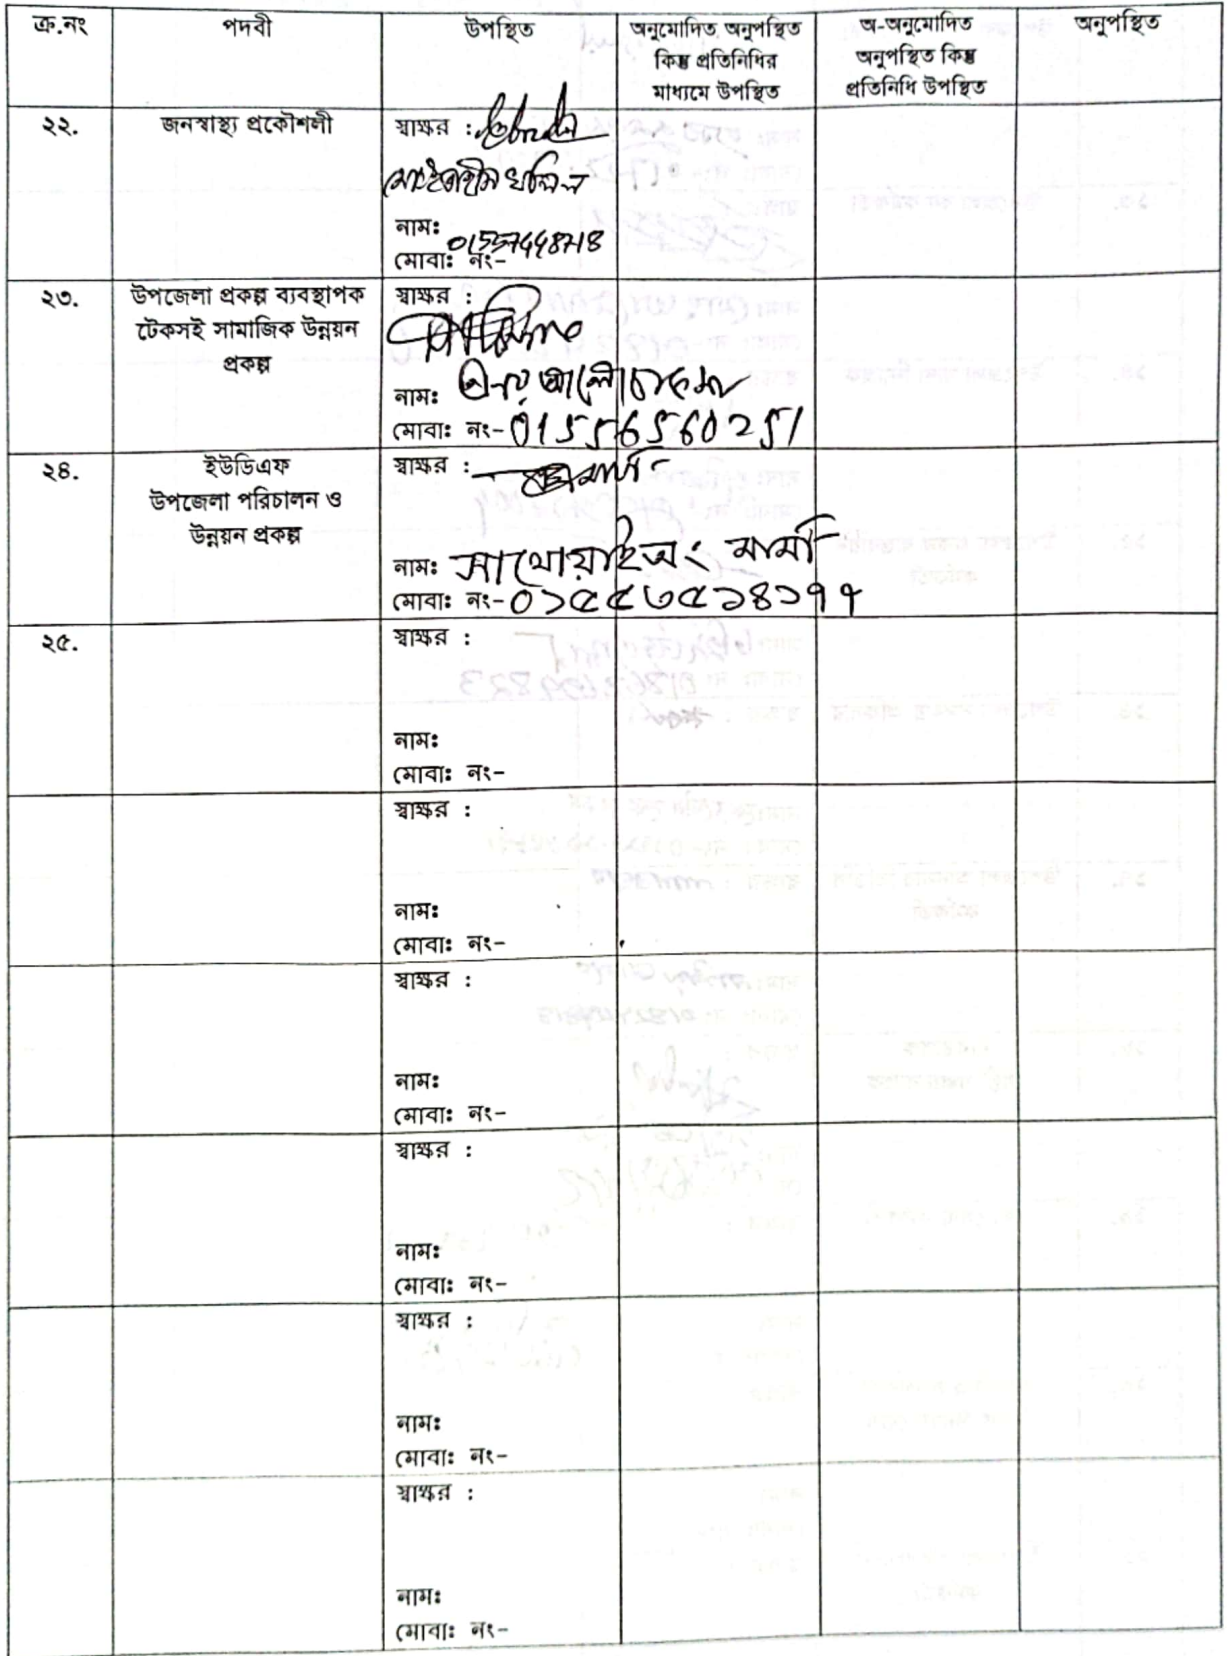 ক্র.নং পদবী উপস্থিত অনুমোদিত অনুপস্থিত কিন্তু প্রতিনিধির মাধ্যমে উপস্থিত অ-অনুমোদিত অনুপস্থিত কিন্তু প্রতিনিধি উপস্থিত অনুপস্থিত
২২. জনস্বাস্থ্য প্রকৌশলী স্বাক্ষর :
নাম:
মোবা: নং-
২৩. উপজেলা প্রকল্প ব্যবস্থাপক স্বাক্ষর :
টেকসই সামাজিক উন্নয়ন
প্রকল্প
নাম:
মোবা: নং- 01556560251
২৪. ইউডিএফ স্বাক্ষর :
উপজেলা পরিচালন ও
উন্নয়ন প্রকল্প
নাম: সাথোয়াইঅং মার্মা
মোবা: নং- ০১৫৫৩৫১৪১৭৭
২৫. স্বাক্ষর :
নাম:
মোবা: নং-
স্বাক্ষর :
নাম:
মোবা: নং-
স্বাক্ষর :
নাম:
মোবা: নং-
স্বাক্ষর :
নাম:
মোবা: নং-
স্বাক্ষর :
নাম:
মোবা: নং-
স্বাক্ষর :
নাম:
মোবা: নং-